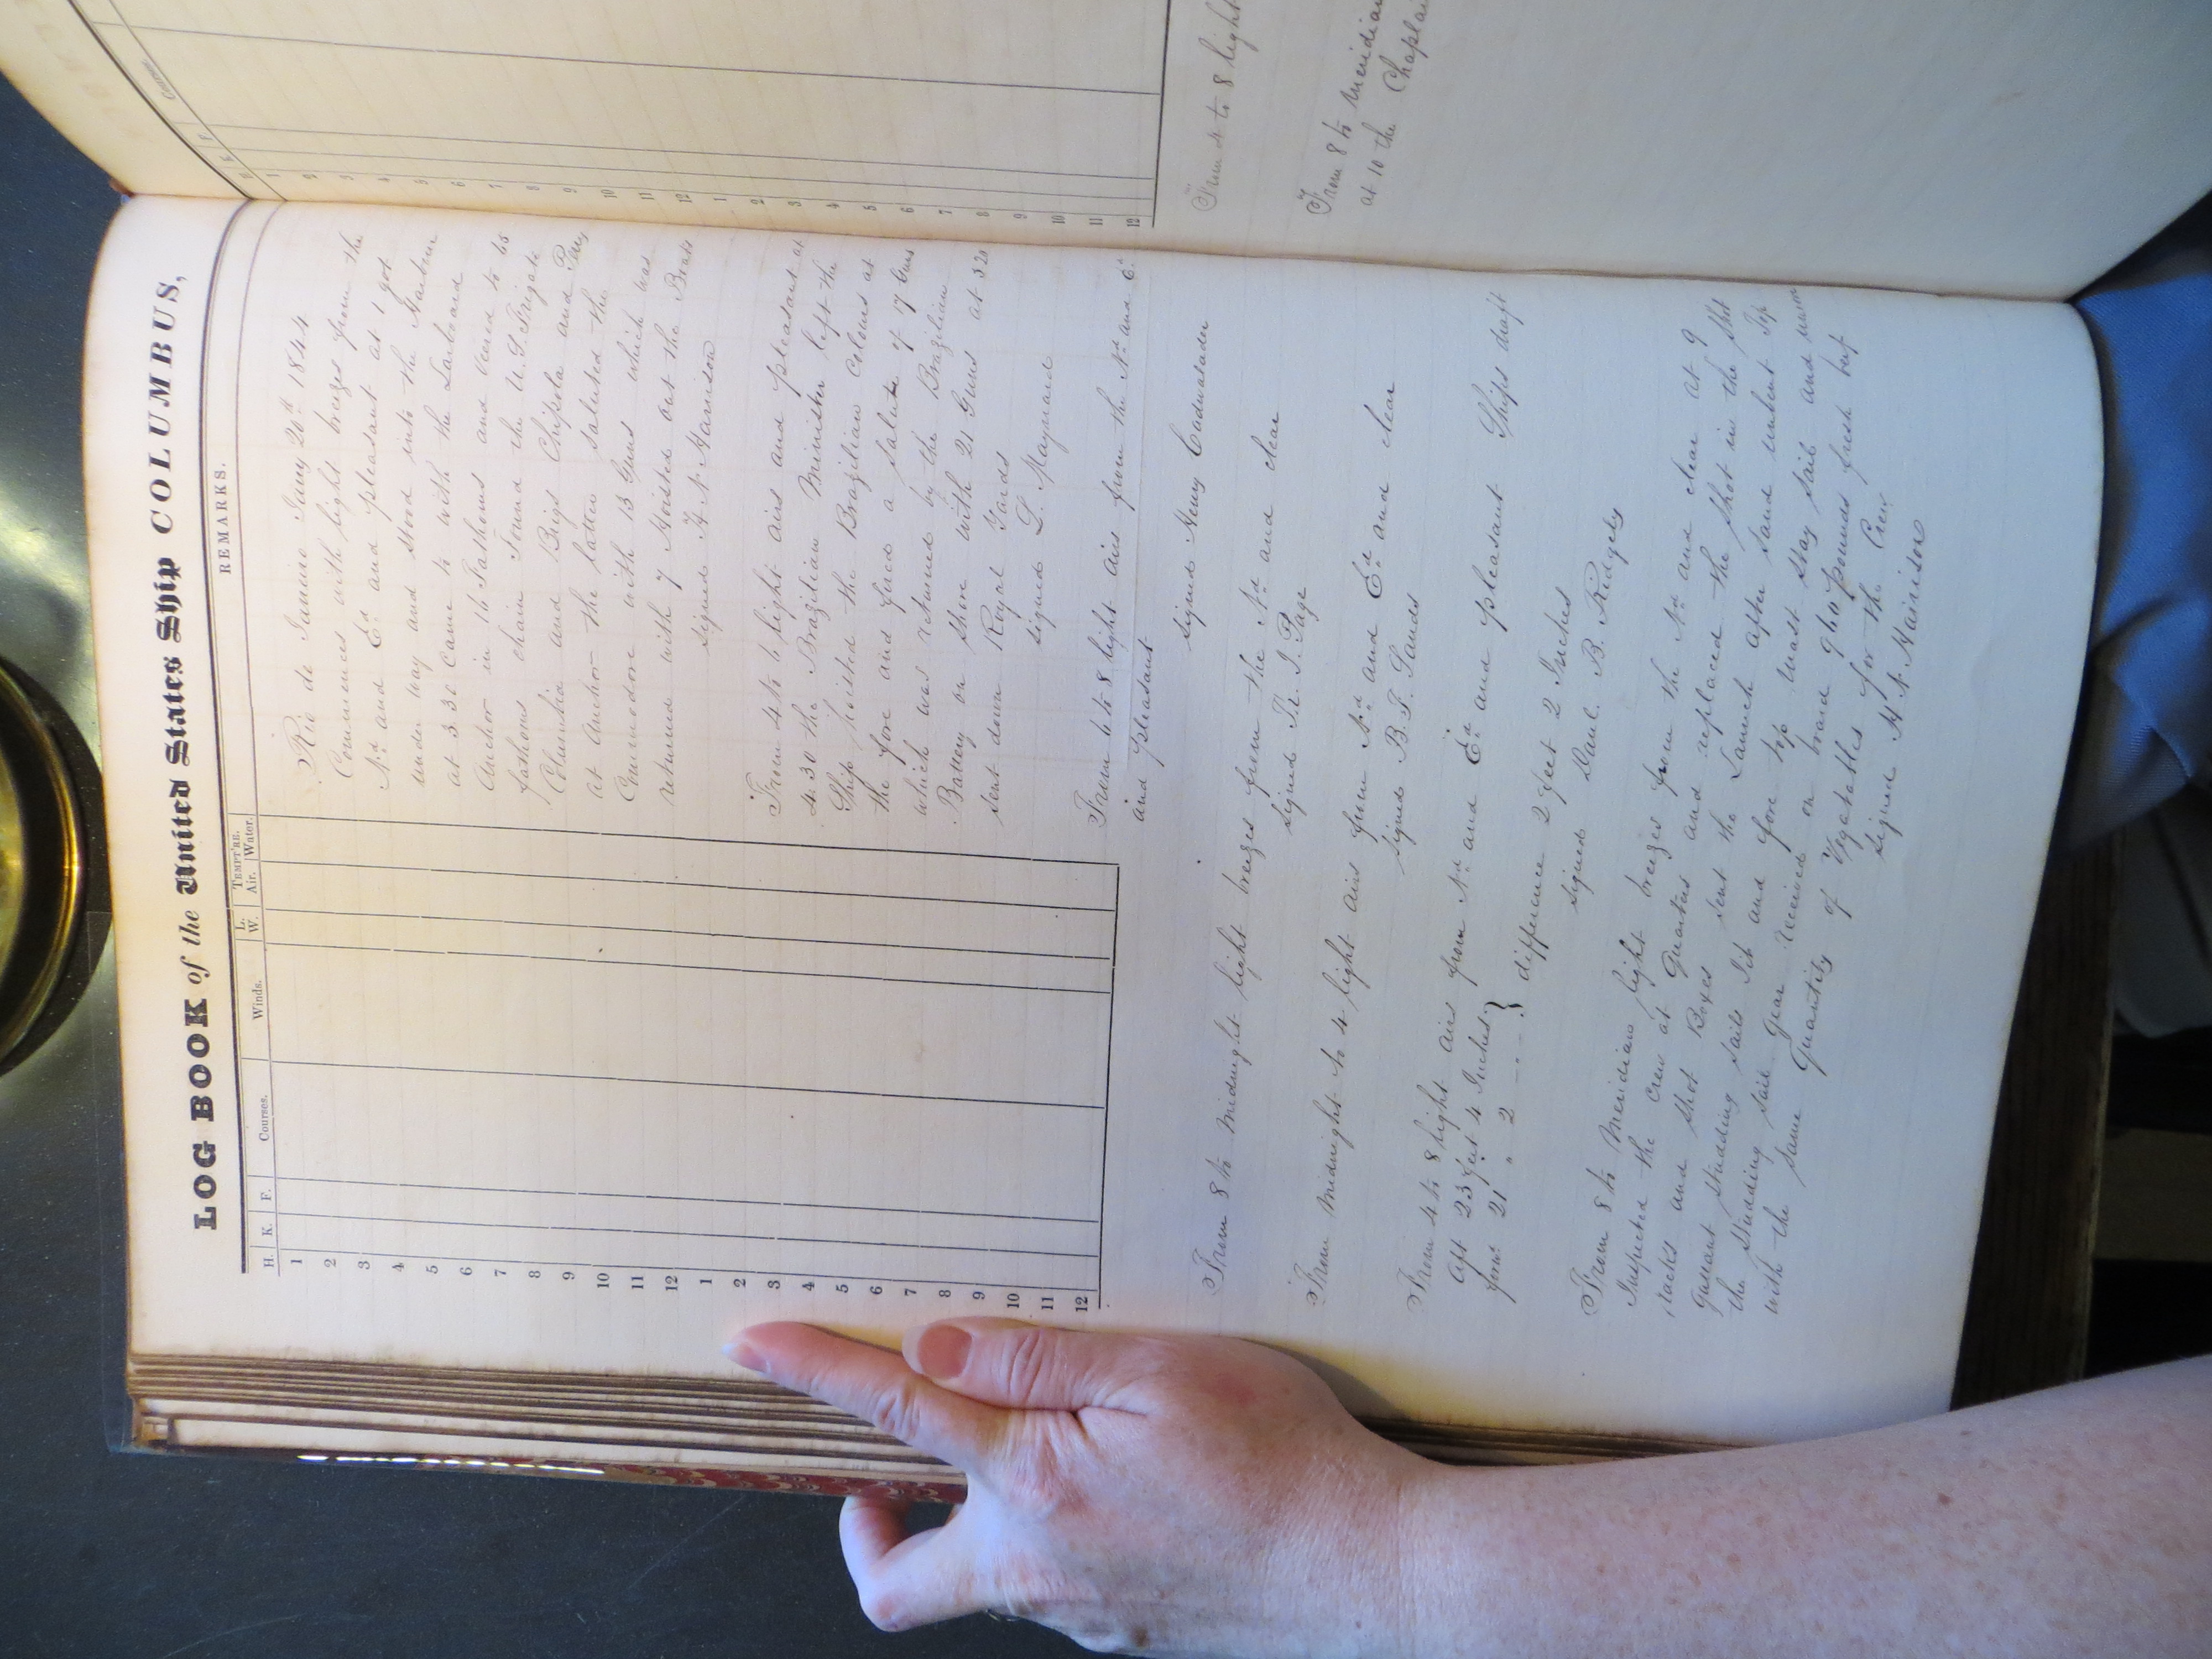 LOG BOOK of the United States Ship COLUMBUS,
H. K. F. Courses. Winds. L. W. TEMPT'RE. Air. Water. REMARKS.
1
2
3
4
5
6
7
8
9
10
11
12
1
2
3
4
5
6
7
8
9
10
11
12
Rio de Janeiro Jany 20th 1844
Commences with light breezes from the
Nd and Ed and pleasant at 1 got
under way and stood into the Harbour
at 3.30 Came to with the Larboard
Anchor in 16 Fathoms and veered to 45
fathoms chain Found the U.S. Frigate
Columbia and Brigs Chipola and Perry
at Anchor the latter saluted the
Commodore with 13 Guns which was
returned with 7 Hoisted out the Boats
signed H. N. Harrison
From 4 to 6 light airs and pleasant at
4.30 the Brazilian Minister left the
Ship hoisted the Brazilian Colours at
the fore and fired a salute of 17 Guns
which was returned by the Brazilian
Battery on shore with 21 Guns at 5.20
sent down Royal Yards
signed L. Maynard
From 6 to 8 light airs from the Nd and Ed
and pleasant
signed Henry Cadwalader
From 8 to Midnight light breezes from the Nd and clear
signed Tr. J. Page
From Midnight to 4 light airs from Nd and Ed and clear
signed B. F. Sands
From 4 to 8 light airs from Nd and Ed and pleasant Ships draft
Aft 23 feet 4 Inches } difference 2 feet 2 Inches
fore 21 " 2 - - -
signed Danl. B. Ridgely
From 8 to Meridian light breezes from the Nd and clear at 9
Inspected the Crew at Quarters and replaced the shot in the shot
racks and shot Boxes sent the Launch after sand unbent Top
Gallant studding sails Jib and fore top mast stay sail and unrove
the studding sail gear received on board 960 pounds fresh beef
with the same quantity of Vegetables for the Crew
signed H. N. Harrison
Courses.
K. F.
1
2
3
4
5
6
7
8
9
10
11
12
1
2
3
4
5
6
7
8
9
10
11
12
From 4 to 8 light
From 8 to Meridian
at 10 the Chaplai